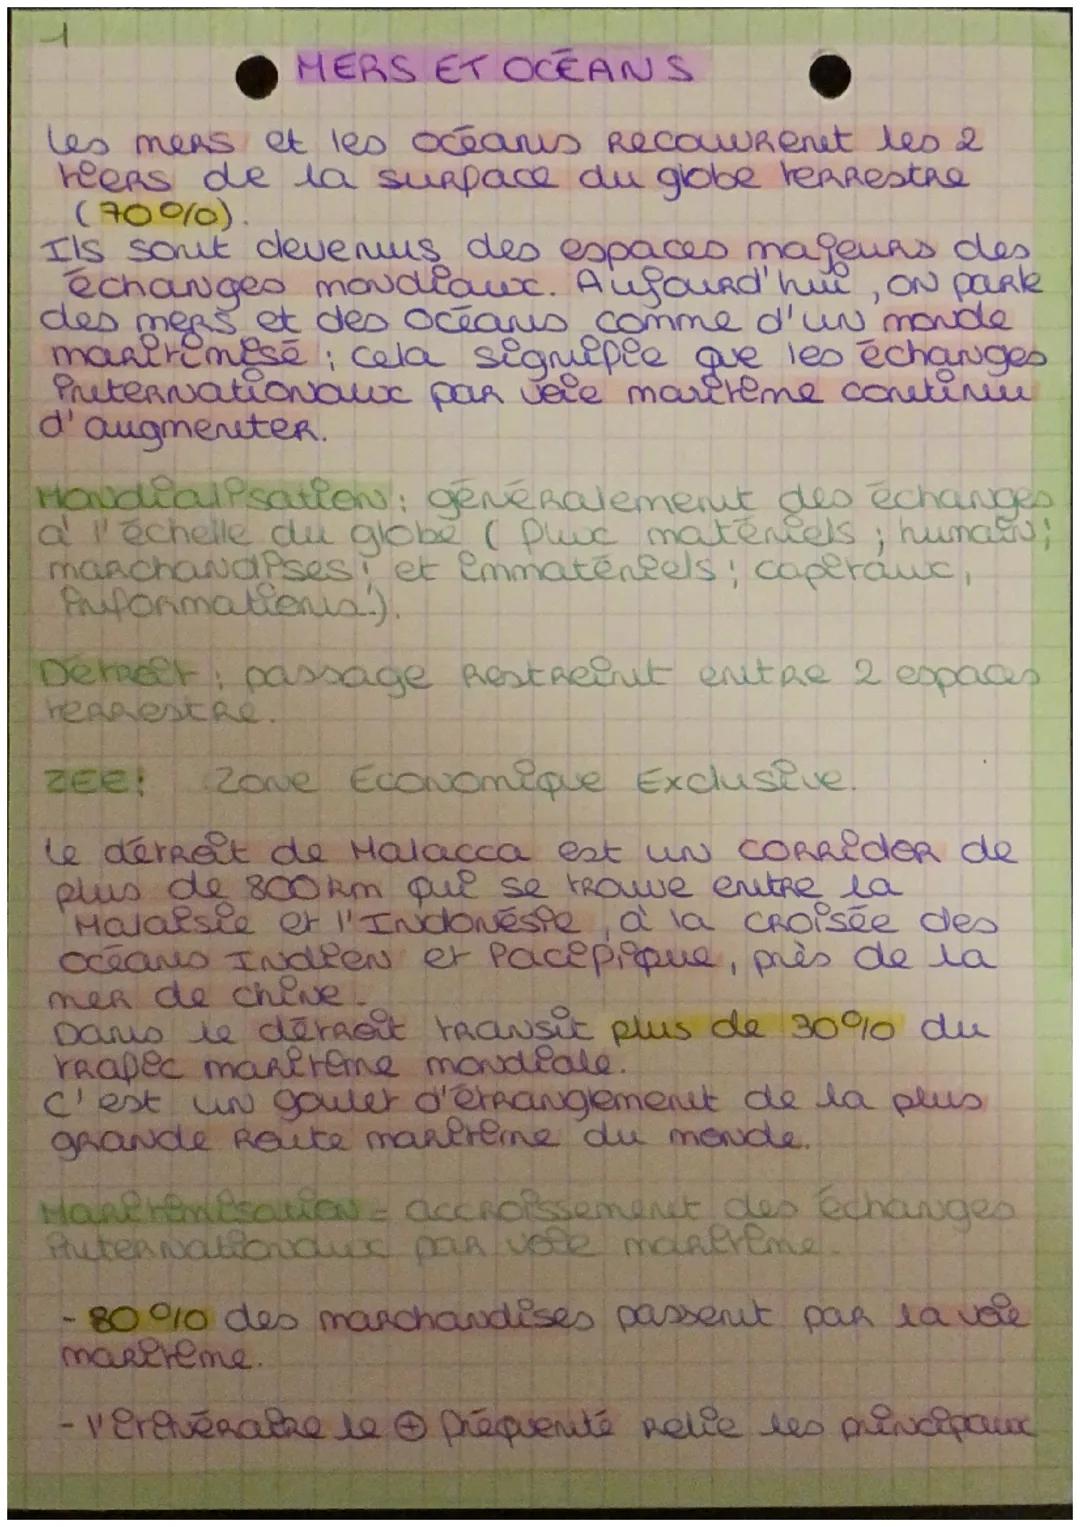 1
MERS ET OCÉANS
Les mers et les océans recouvrent les 2
tiers de la surface du globe terrestre
(70%).
Ils sont devenus des espaces majeurs des
échanges mondiaux. Aujourd'hui, on parle
des mers et des océans comme d'un monde
maritimisé ; cela signifie que les échanges
internationaux par voie maritime continu
d'augmenter.
Mondialisation : généralement des échanges
à l'échelle du globe (flux matériels ; humain ;
marchandises ; et immatériels ; capitaux,
informations.).
Détroit : passage restreint entre 2 espaces
terrestre.
ZEE : Zone Économique Exclusive.
Le détroit de Malacca est un corridor de
plus de 800 km qui se trouve entre la
Malaisie et l'Indonésie, à la croisée des
océans Indien et Pacifique, près de la
mer de chine.
Dans le détroit transit plus de 30% du
trafic maritime mondiale.
C'est un goulet d'étranglement de la plus
grande route maritime du monde.
Maritimisation = accroissement des échanges
internationaux par voie maritime.
- 80% des marchandises passent par la voie
maritime.
- l'itinéraire le ⊕ fréquenté relie les principaux